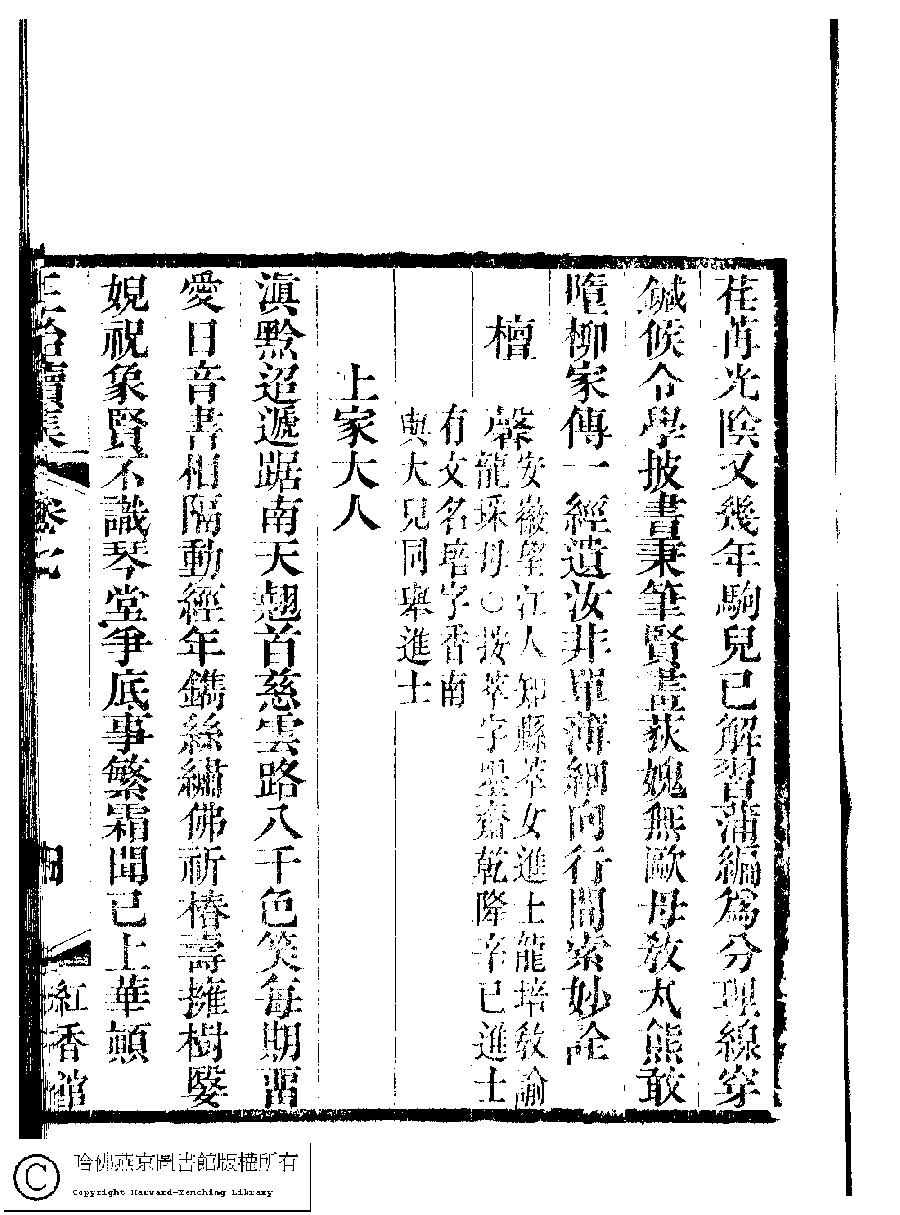 荏苒光陰又幾年駒兒已解習蒲編為分理線穿
鍼候令學披書秉筆賢畫荻媿無歐母教丸熊敢
隳柳家傳一經遺汝非單薄細向行間索妙詮
檀馨安徽望江人知縣萃女進士龍培教諭
龍琛母○按萃字墨齋乾隆辛巳進士
有文名培字香南
與大兒同舉進士
上家大人
滇黔迢遞踞南天翹首慈雲路八千色笑每期酉
愛日音書相隔動經年鐫絲繡佛祈椿壽擁樹嫛
婗祝象賢不識琴堂爭底事繁霜聞已上華顛
正始續集
卷七
紅香館
哈佛燕京圖書館版權所有
Copyright Harvard-Yenching Library